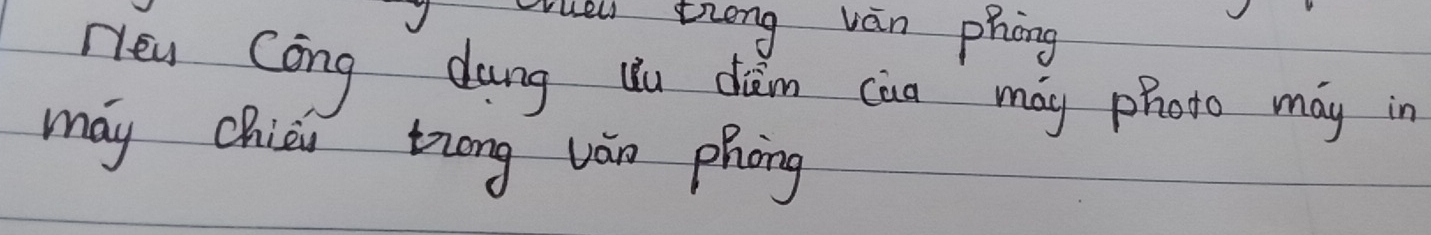 trong văn phòng
Nêu Công dụng ưu điểm của máy photo máy in
máy chiếu trong văn phòng